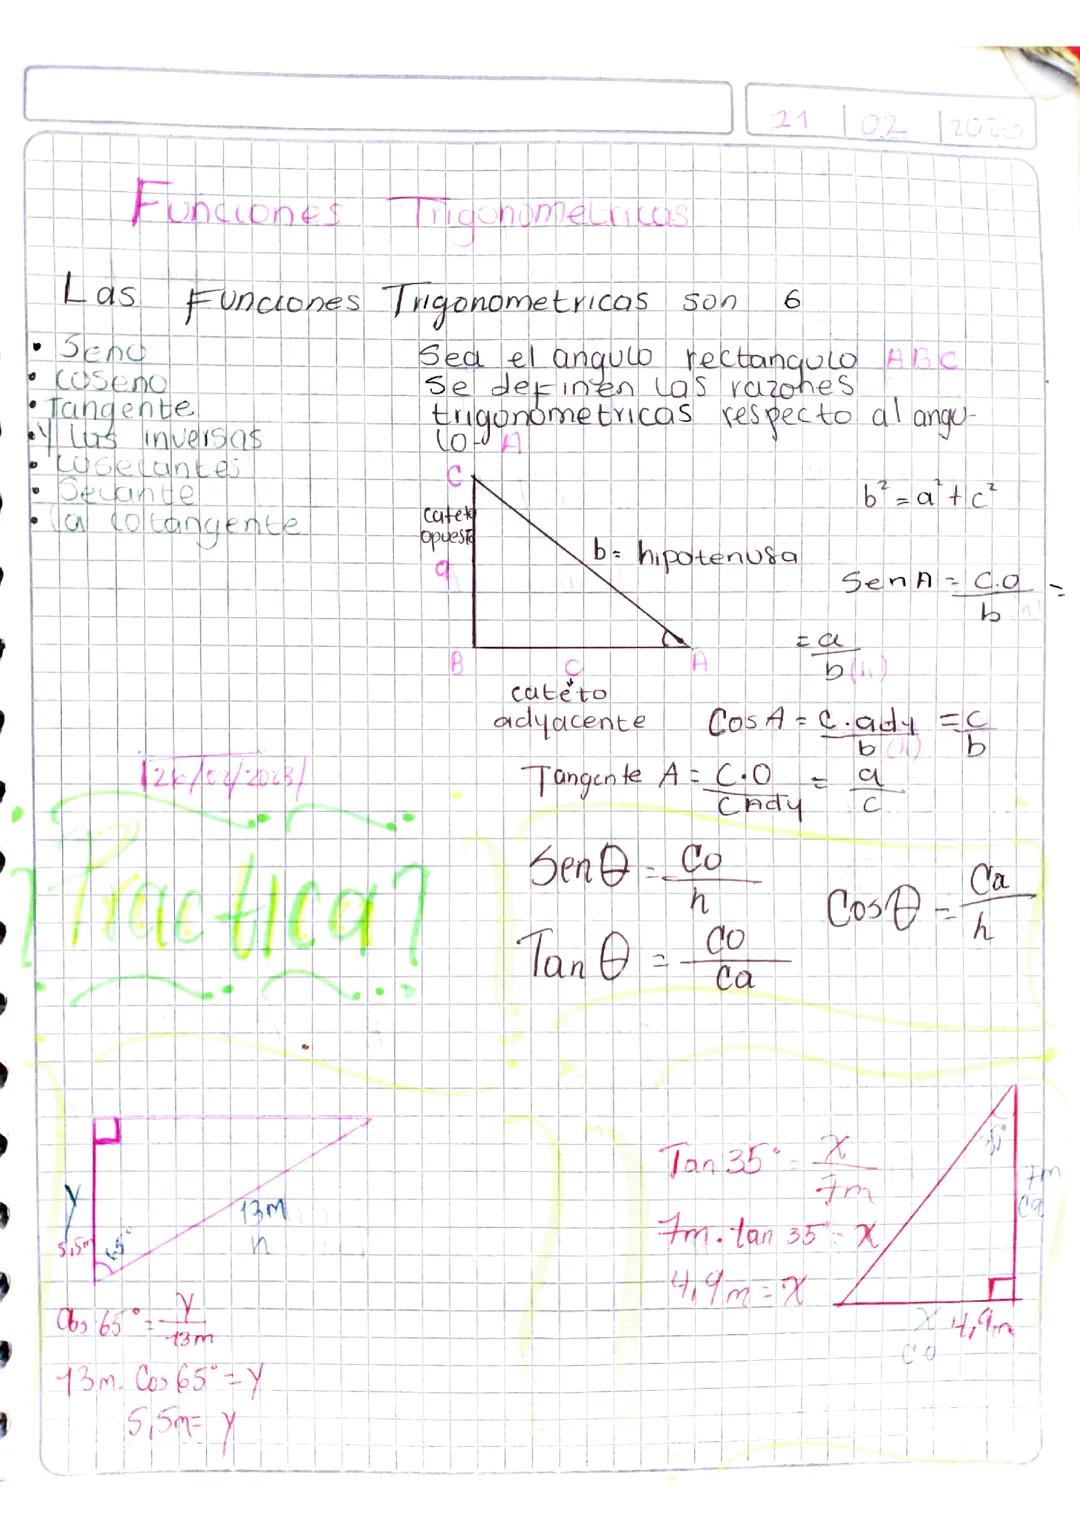 21 | 02 | 2023
Funciones Trigonometricas
Las Funciones Trigonometricas son 6
• Seno
• coseno
• Tangente
• y las inversas
• cosecantes
• Secante
• la cotangente
Sea el angulo rectangulo ABC
Se definen las razones
trigonometricas respecto al angu-
lo A
C
catet
opuest
a
b = hipotenusa
B
c
A
cateto
adyacente
b² = a² + c²
Sen A = C.O / b (h) =
= a / b (h)
Cos A = C.ady / b (h) = c / b
Tangente A = C.O / C Ady = a / c
26/02/2023
Practica
Sen θ = Co / h
Cos θ = Ca / h
Tan θ = CO / Ca
y
5,5m
65°
13m
h
Cos 65° = y / 13m
13m. Cos 65° = y
5,5m = y
Tan 35° = x / 7m
7m. tan 35° = x
4,9m = x
35°
7m
Ca
x 4,9m
CO